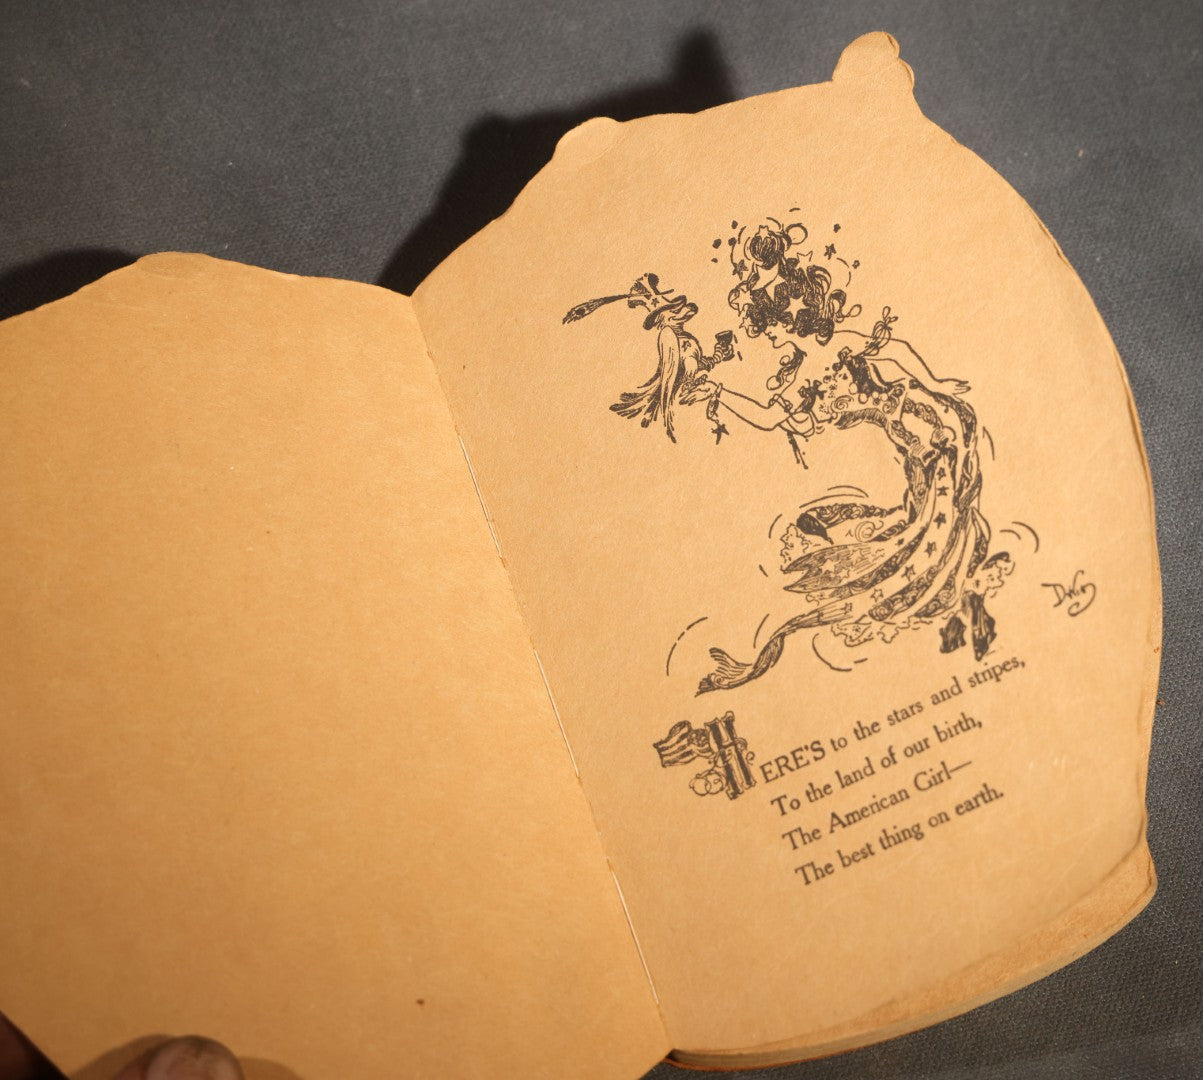 HERE'S to the stars and stripes,
To the land of our birth,
The American Girl—
The best thing on earth.